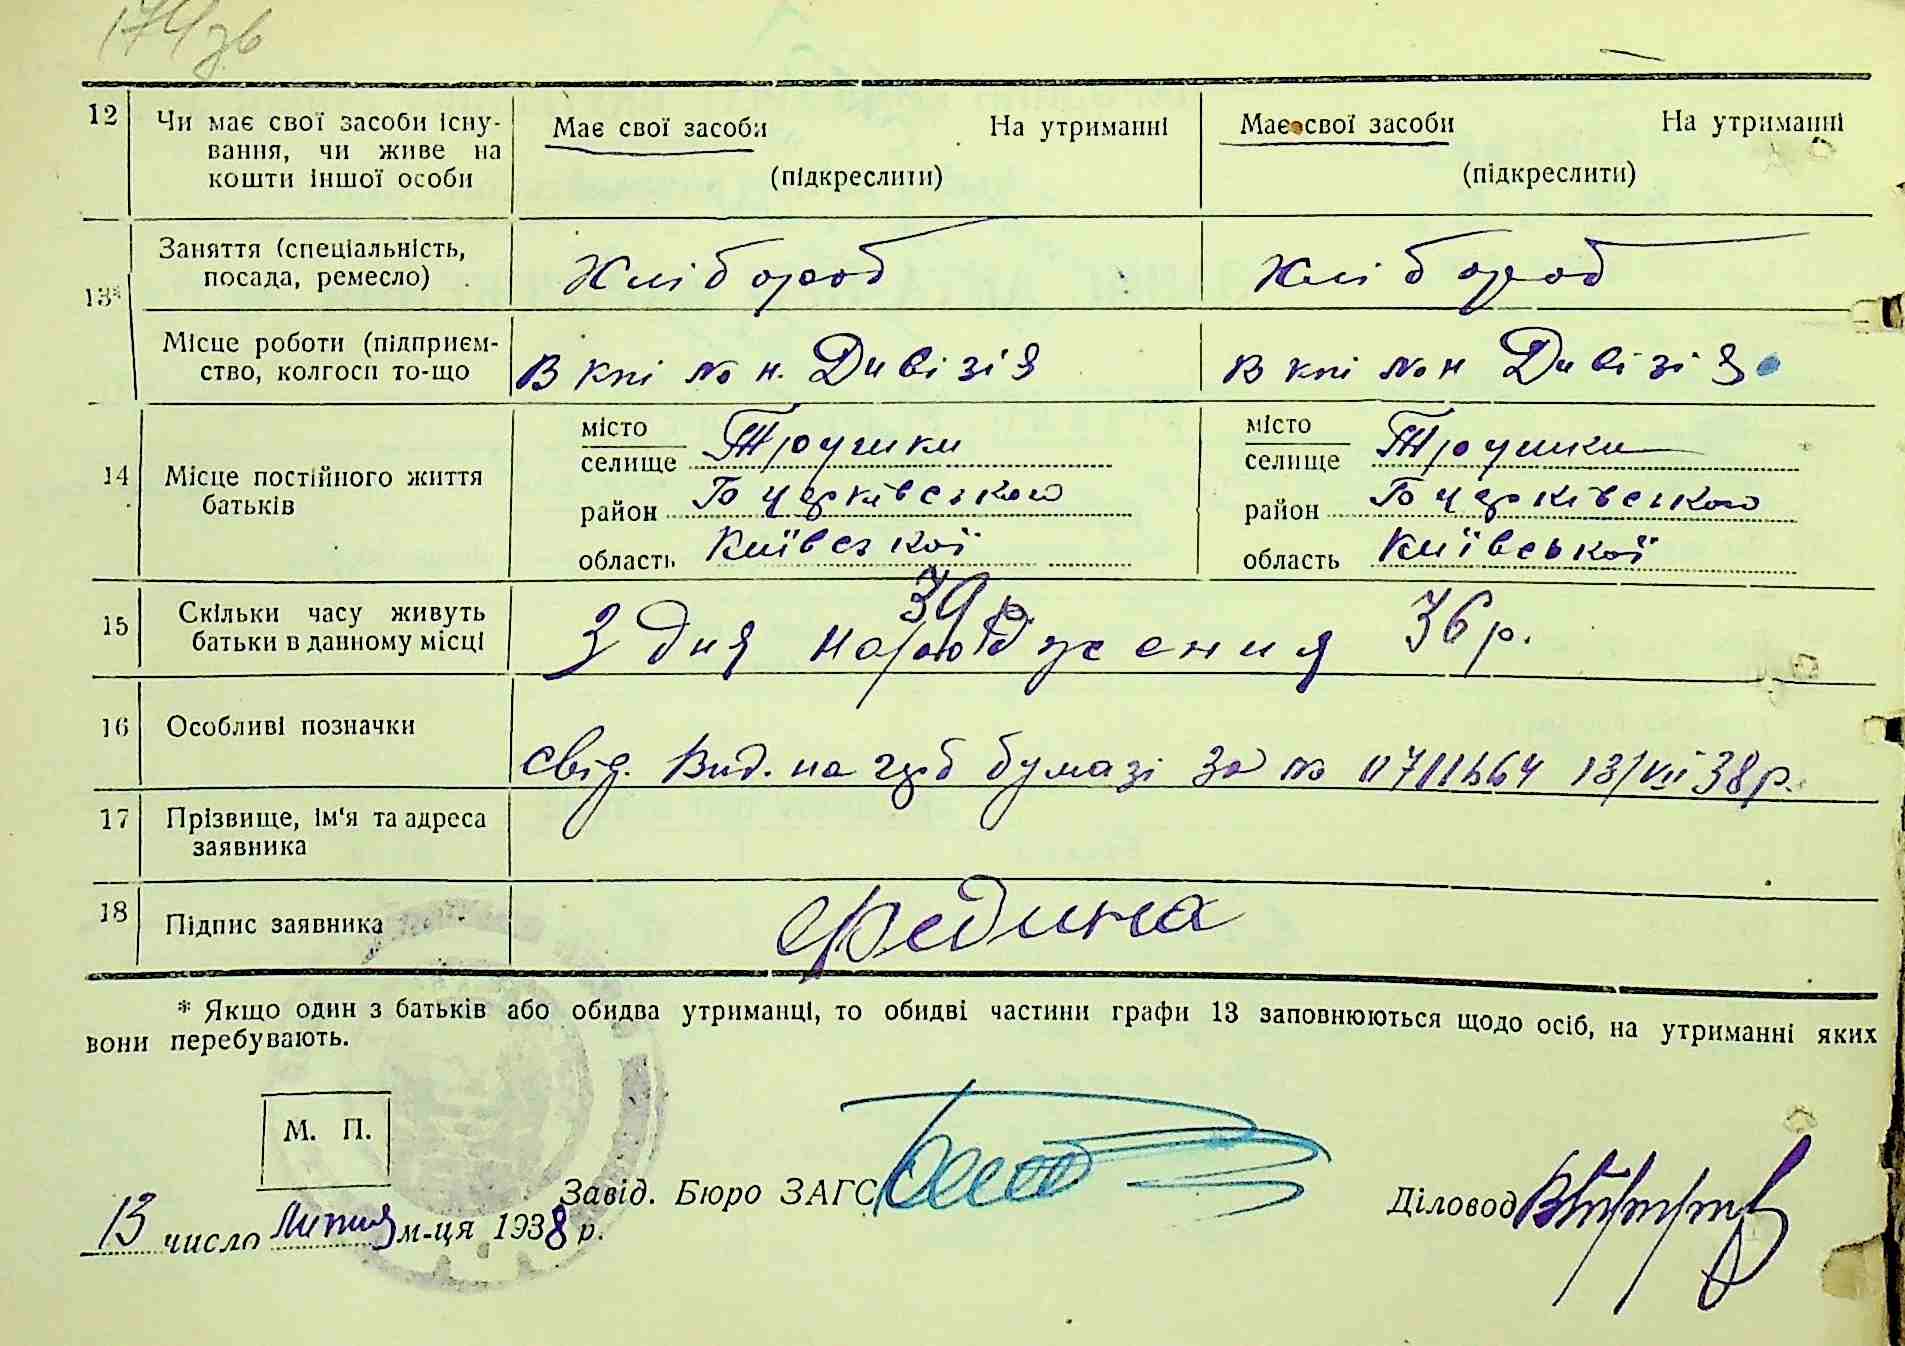 174зв
12 Чи має свої засоби існу-
вання, чи живе на
кошти іншої особи
Має свої засоби На утриманні
(підкреслити)
Має свої засоби На утриманні
(підкреслити)
13*
Заняття (спеціальність,
посада, ремесло)
Хлібороб
Хлібороб
Місце роботи (підприєм-
ство, колгосп то-що
В кпі № н. Дивізія
В кпі № н Дивізія
14 Місце постійного життя
батьків
місто
селище Трушки
район Б Церківського
область Київської
місто
селище Трушки
район Б Церківського
область Київської
15 Скільки часу живуть
батьки в данному місці
З дня народження
39 р. 36 р.
16 Особливі позначки
Свід. Вид. на герб бумазі за № 13/VII 38 р.
17 Прізвище, ім'я та адреса
заявника
18 Підпис заявника
Федина
* Якщо один з батьків або обидва утриманці, то обидві частини графи 13 заповнюються щодо осіб, на утриманні яких
вони перебувають.
М. П.
Завід. Бюро ЗАГС
Діловод
13 число Липня м-ця 1938 р.